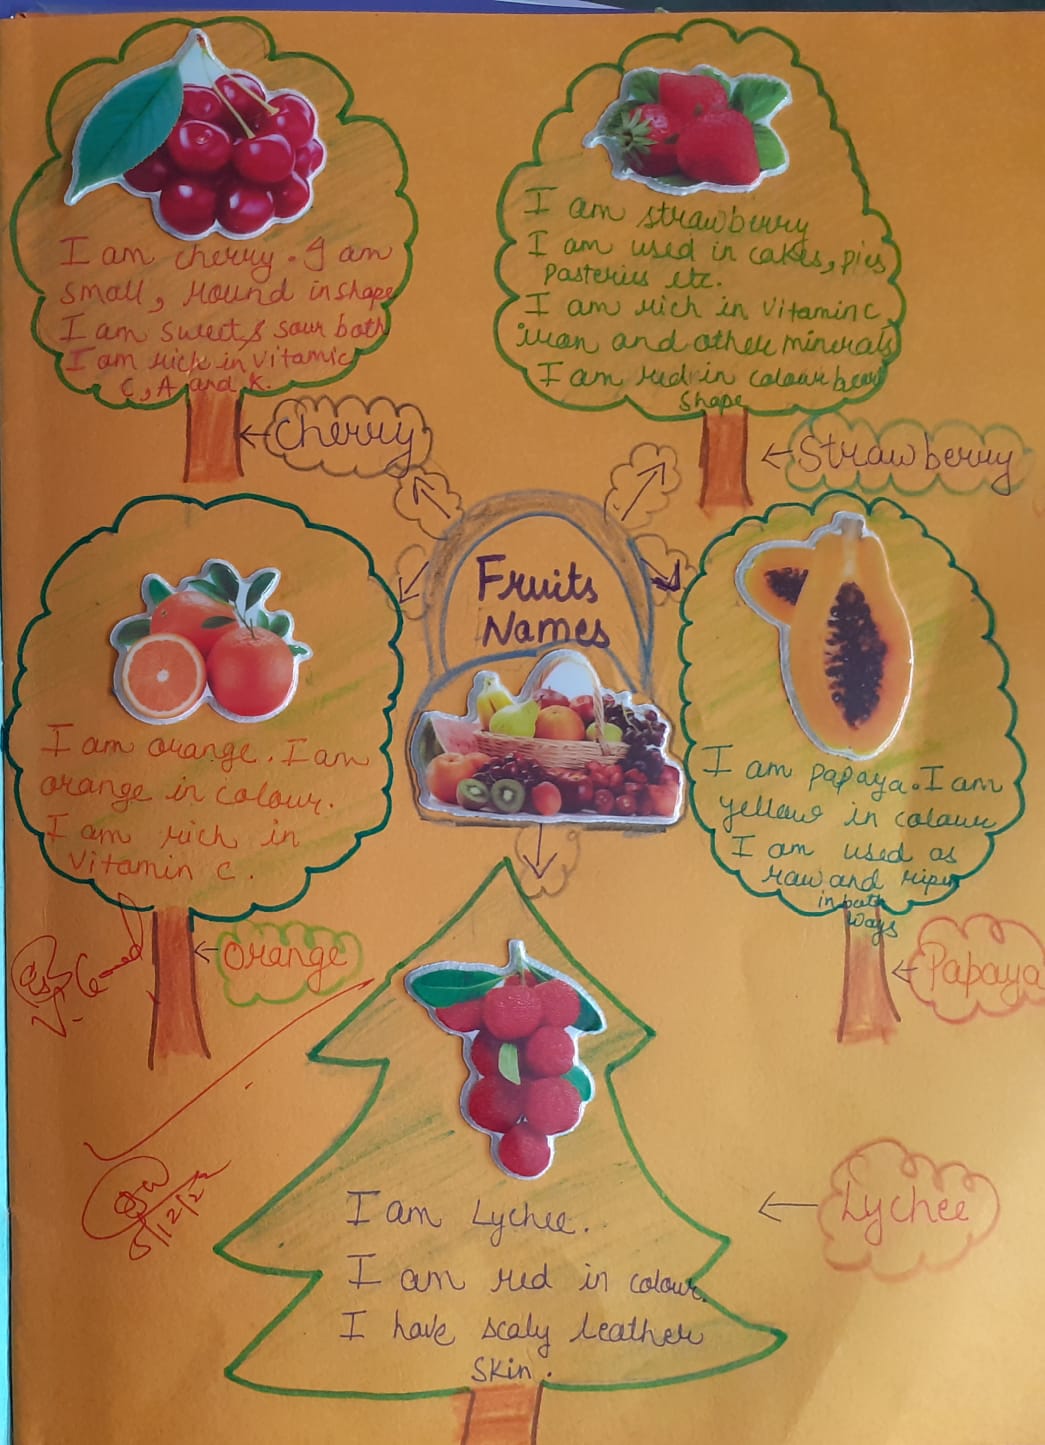 I am cherry. I am
small, round in shape
I am sweet & sour both
I am rich in vitamic
C, A and K.
Cherry
I am strawberry
I am used in cakes, pies
Pasteries etc.
I am rich in vitamin c
iron and other minerals
I am red in colour
shape
Strawberry
Fruits
Names
I am orange. I am
orange in colour.
I am rich in
Vitamin C.
Orange
I am papaya. I am
yellow in colour
I am used as
raw and ripe
in both
ways
Papaya
V. Good
5/12/22
I am Lychee.
I am red in colour.
I have scaly leather
Skin.
Lychee